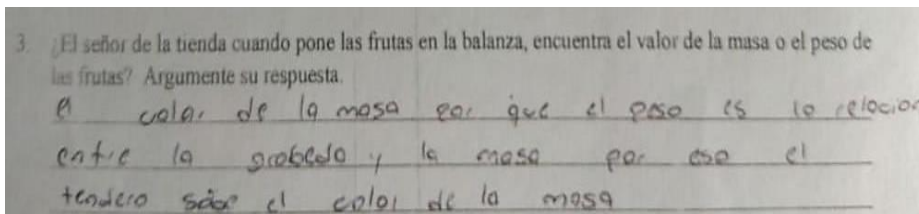 3. ¿El señor de la tienda cuando pone las frutas en la balanza, encuentra el valor de la masa o el peso de
las frutas? Argumente su respuesta.
el valor de la masa por que el peso es la relacion
entre la grabeda y la masa por eso el
tendero sabe el valor de la masa